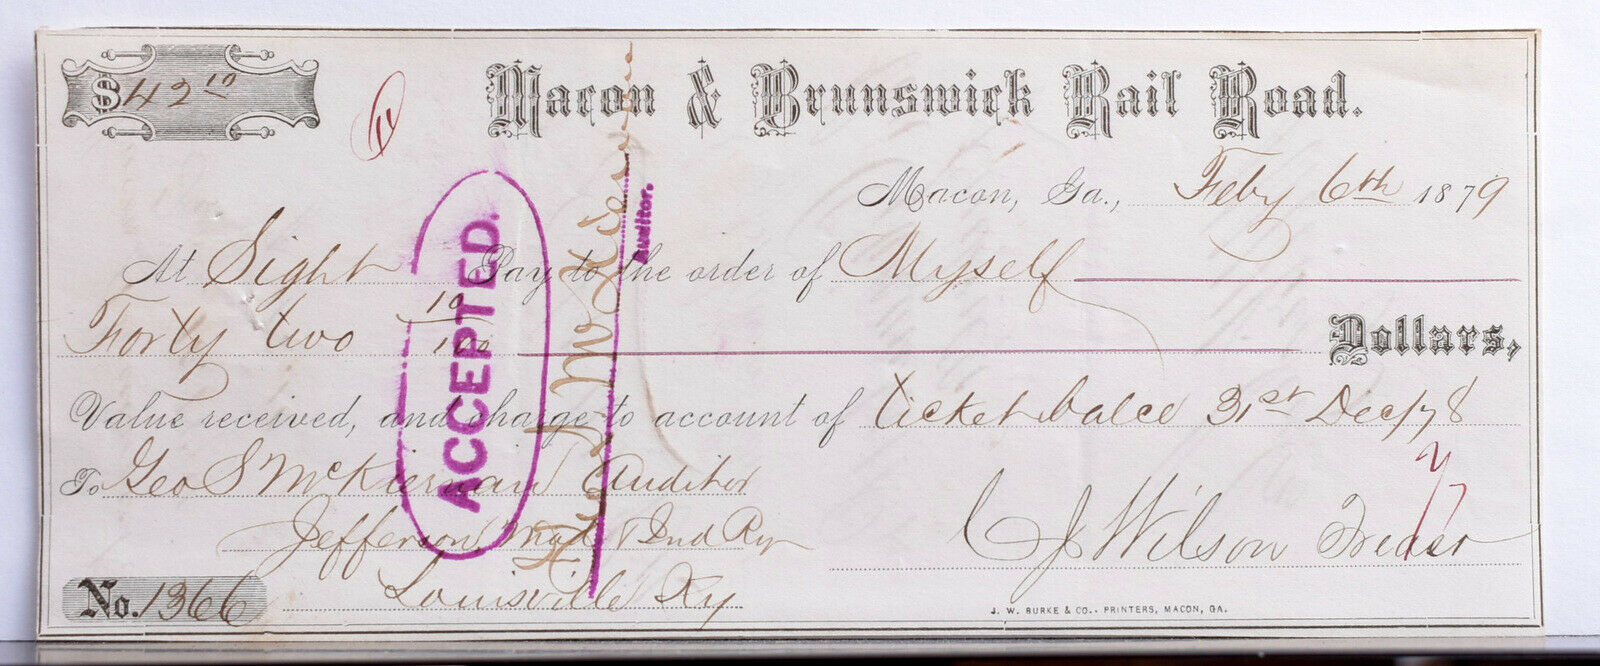 $42 10
11
Macon & Brunswick Rail Road.
Macon, Ga., Feby 6th 1879
At Sight Pay to the order of Myself
Forty two 10/100 Dollars,
Value received, and charge to account of ticket balce 31st Dec/78
To Geo S McKiernan Auditor
Jefferson, Mad & Ind Ry
Louisville Ky
No. 1366
C J Wilson Treasr
J. W. BURKE & CO.. PRINTERS, MACON, GA.
ACCEPTED.
Auditor.